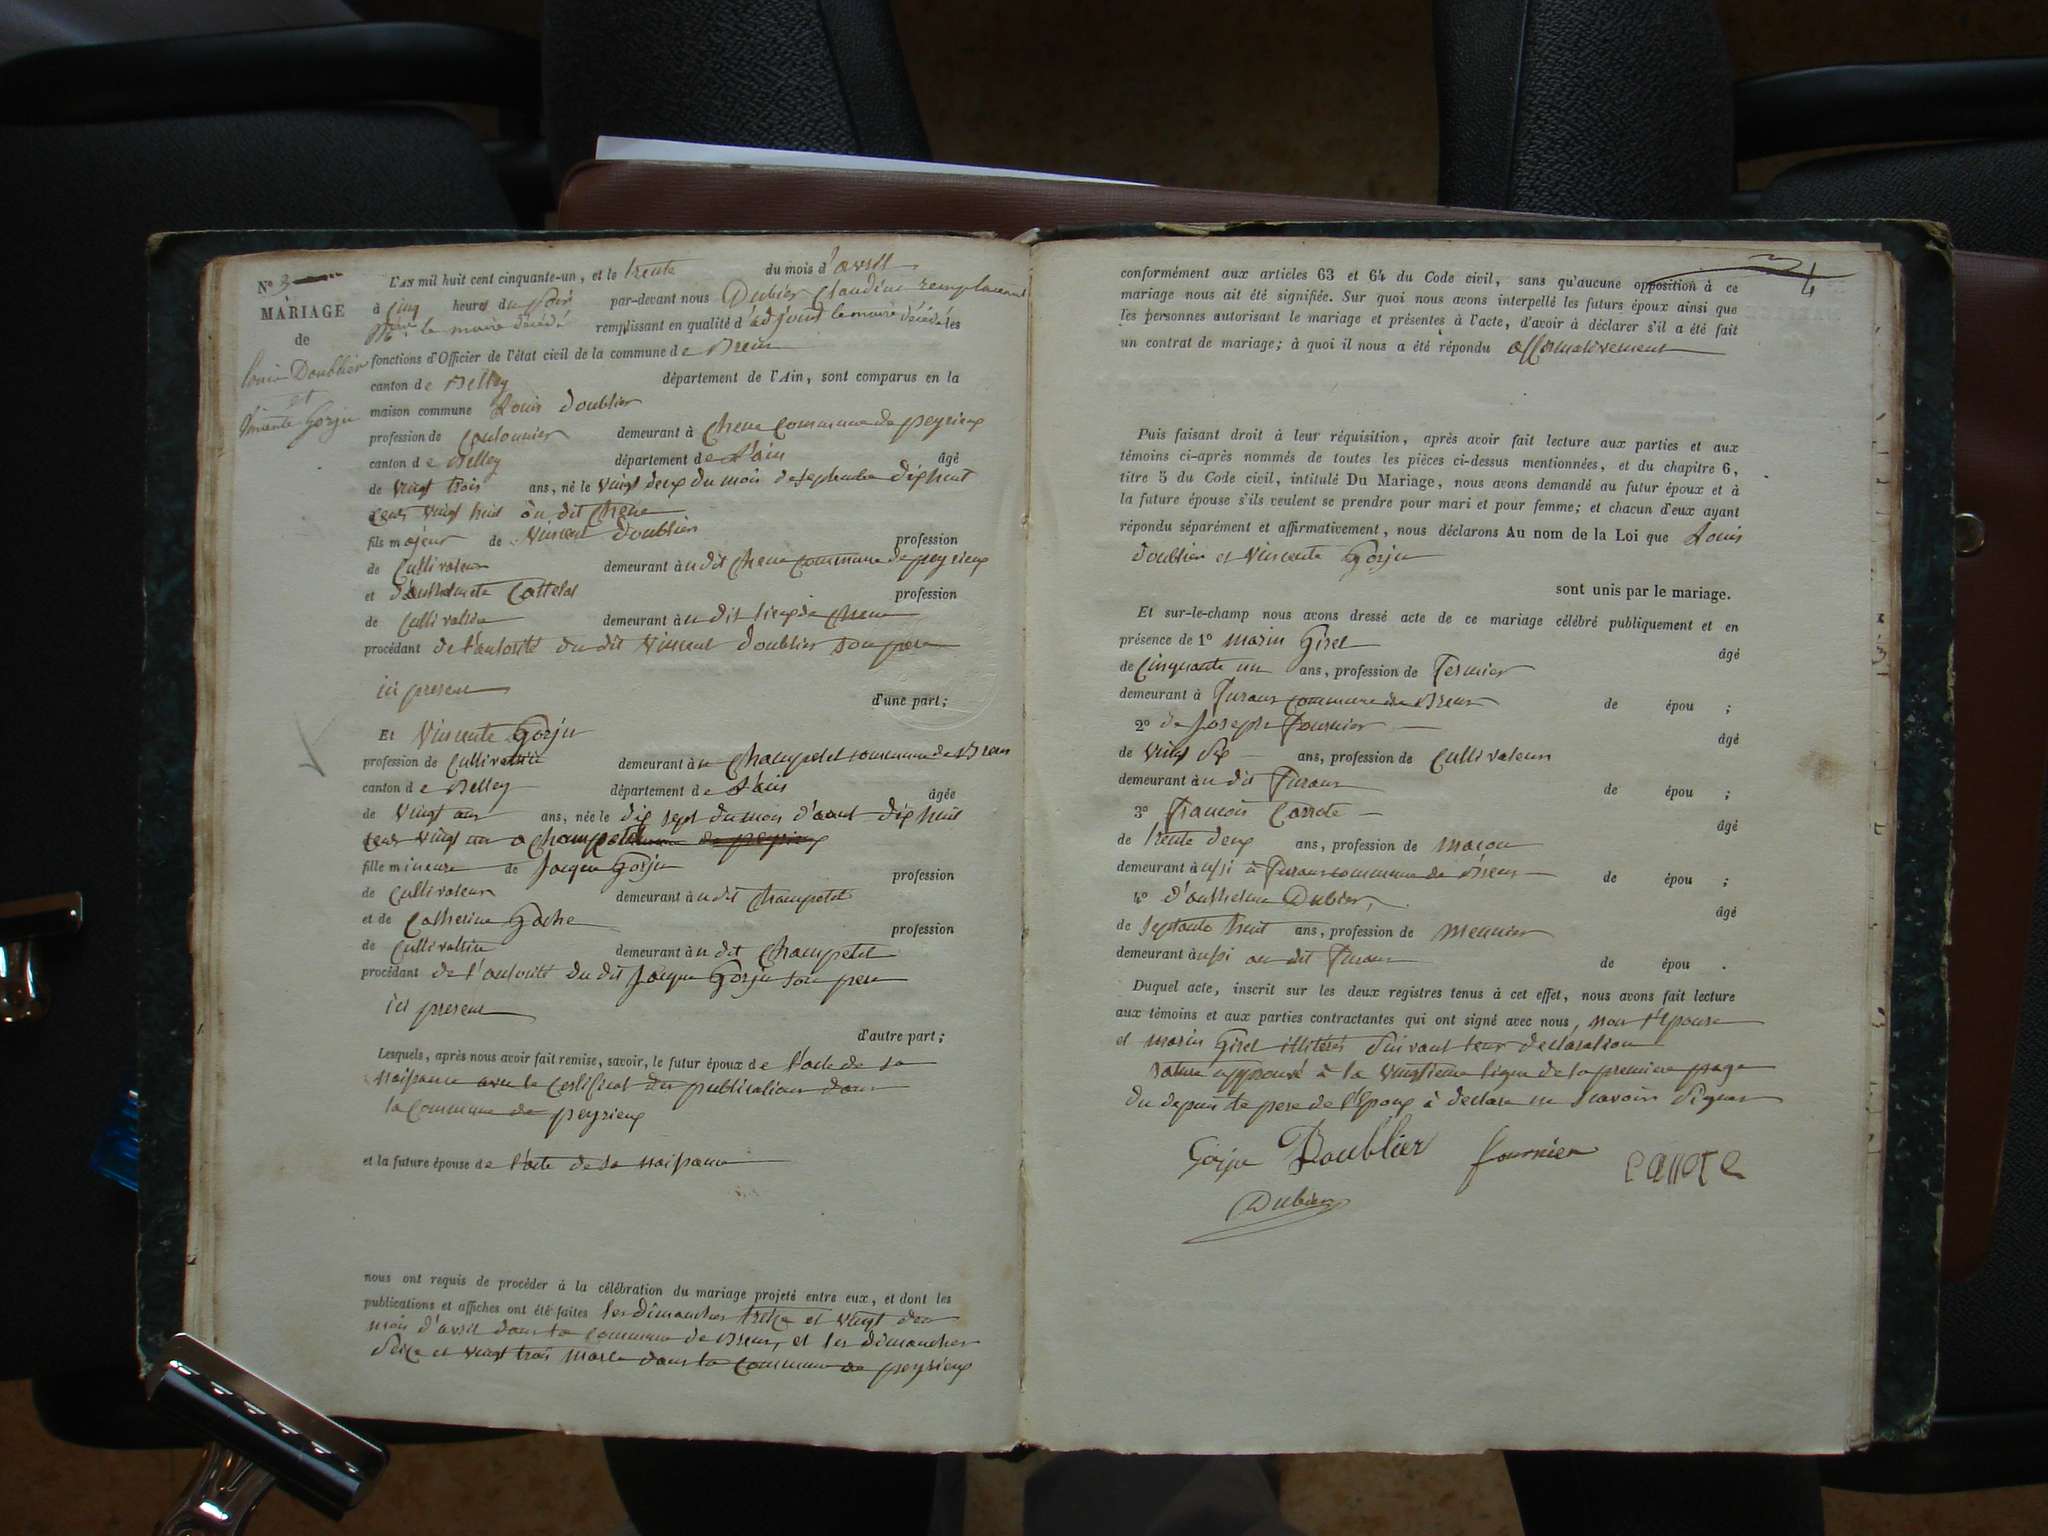 N° 3
MARIAGE
de
Louis Doublier
et
Vincente Gorju
L'AN mil huit cent cinquante-un, et le trente du mois d'avril
à cinq heures du soir par-devant nous Dubier Claudéus remplacent
le maire décédé remplissant en qualité d'adjoint le maire décédé les
fonctions d'Officier de l'état civil de la commune de Brens
canton de Belley département de l'Ain, sont comparus en la
maison commune Louis Doublier
profession de demeurant à Chene commune de peyrieux
canton de Belley département de L'ain âgé
de vingt trois ans, né le vingt deux du mois de septembre dix huit
cent vingt huit au dit Chene
fils majeur de Vincent Doublier profession
de Cultivateur demeurant au dit Chene commune de peyrieux
et d'anthelmete Cattelat profession
de Cultivatrice demeurant au dit lieux de Chene
procédant de l'autorité du dit Vincent Doublier son pere
ici present
d'une part;
Et Vincente Gorju
profession de Cultivatrice demeurant au Champetel commune de Brens
canton de Belley département de L'ain âgée
de vingt ans ans, née le dix sept du mois d'aout dix huit
cent vingt un a Champetel de peyrieux
fille mineure de Jacque Gorju profession
de Cultivateur demeurant au dit Champetel
et de Catherine Gache profession
de Cultivatrice demeurant au dit Champetel
procédant de l'autorité du dit Jacque Gorju son pere
ici present
d'autre part;
Lesquels, après nous avoir fait remise, savoir, le futur époux de l'acte de sa
naissance avec le certificat des publications dans
la commune de peyrieux
et la future épouse de l'acte de sa naissance
nous ont requis de procéder à la célébration du mariage projeté entre eux, et dont les
publications et affiches ont été faites les dimanches treize et vingt du
mois d'avril dans la commune de Brens, et les dimanches
seize et vingt trois mars dans la commune de peyrieux
4
conformément aux articles 63 et 64 du Code civil, sans qu'aucune opposition à ce
mariage nous ait été signifiée. Sur quoi nous avons interpellé les futurs époux ainsi que
les personnes autorisant le mariage et présentes à l'acte, d'avoir à déclarer s'il a été fait
un contrat de mariage; à quoi il nous a été répondu affirmativement
Puis faisant droit à leur réquisition, après avoir fait lecture aux parties et aux
témoins ci-après nommés de toutes les pièces ci-dessus mentionnées, et du chapitre 6,
titre 5 du Code civil, intitulé Du Mariage, nous avons demandé au futur époux et à
la future épouse s'ils veulent se prendre pour mari et pour femme; et chacun d'eux ayant
répondu séparément et affirmativement, nous déclarons Au nom de la Loi que Louis
Doublier et Vincente Gorju
sont unis par le mariage.
Et sur-le-champ nous avons dressé acte de ce mariage célébré publiquement et en
présence de 1° marin Giret âgé
de Cinquante un ans, profession de Fermier
demeurant à Furans commune de Brens de épou ;
2° de Joseph Fournier âgé
de vingt six ans, profession de Cultivateur
demeurant au dit Furans de épou ;
3° Francois Carrote âgé
de trente deux ans, profession de macon
demeurant aussi à Furans commune de Brens de épou ;
4° d'anthelme Dubier, âgé
de septante huit ans, profession de meunier
demeurant aussi au dit Furans de épou .
Duquel acte, inscrit sur les deux registres tenus à cet effet, nous avons fait lecture
aux témoins et aux parties contractantes qui ont signé avec nous, non l'épouse
et marin Giret illiterés suivant leur declaration
rature approuvé à la vingtieme ligne de la premiere page
du depuis le pere de l'époux à declare ne savoir signer
Gorju Doublier fournier carrote
Dubier